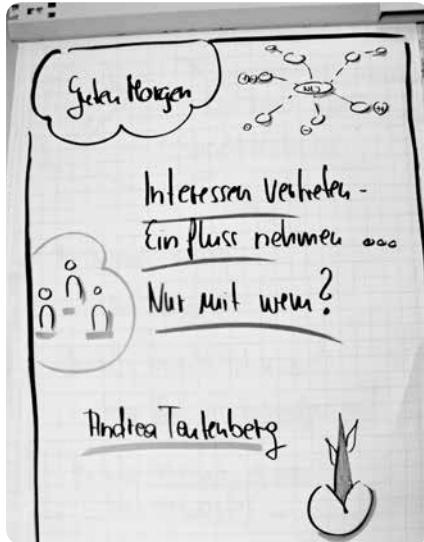 Guten Morgen
Interessen vertreten -
Einfluss nehmen ...
Nur mit wem?
Andrea Tautenberg